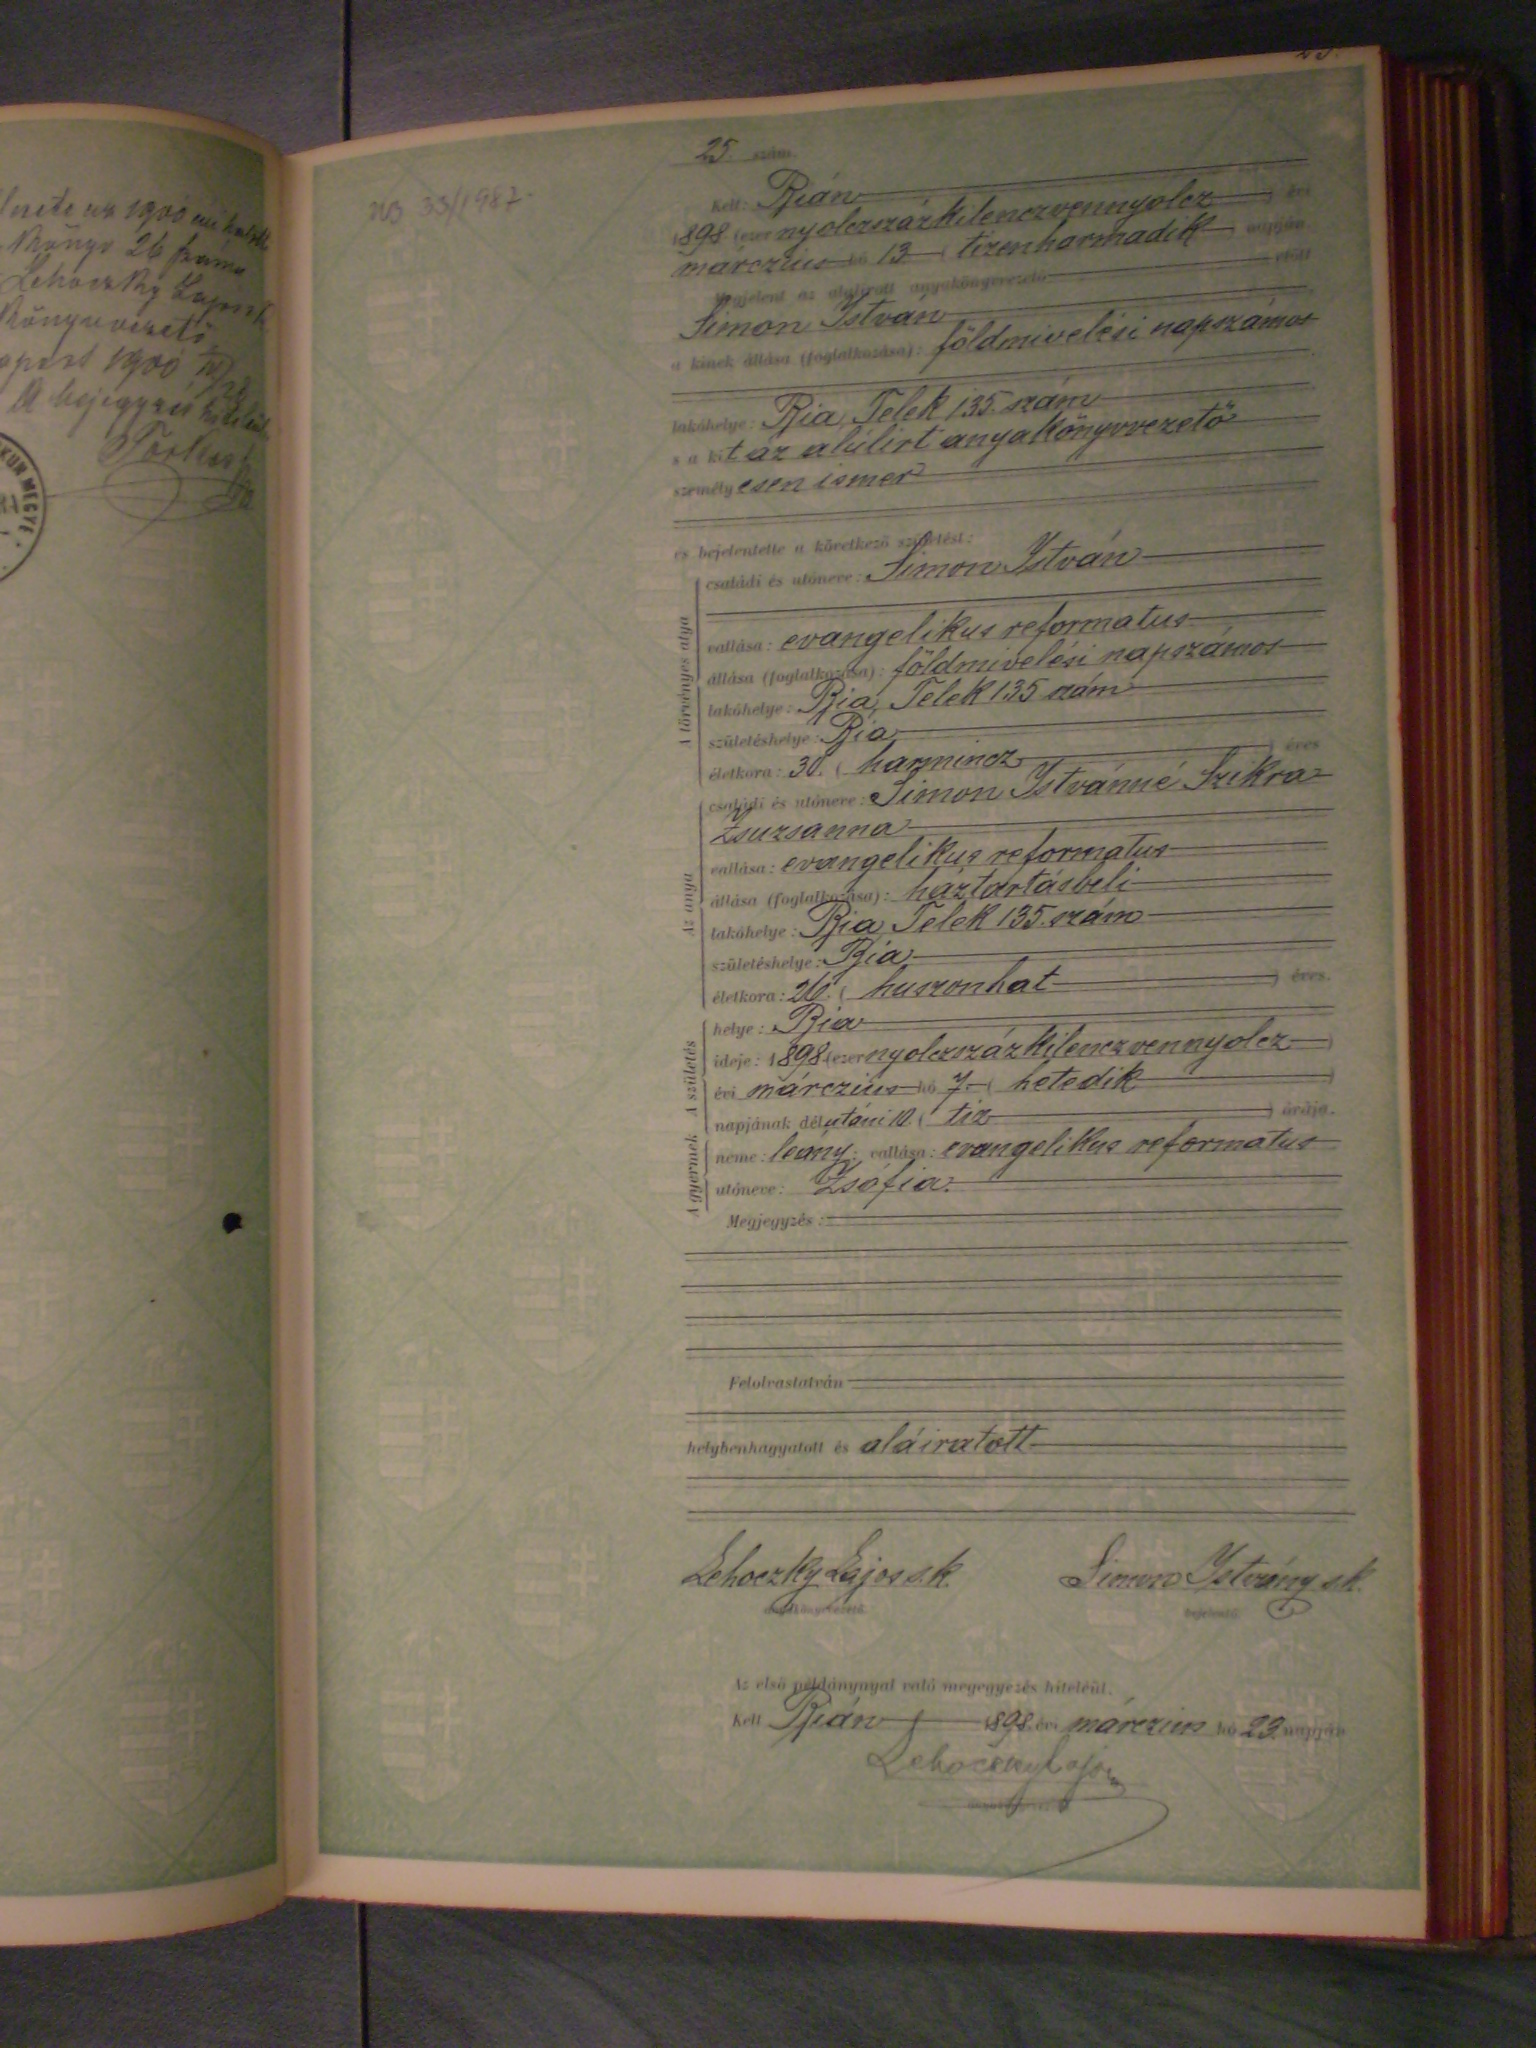 1900 évi halotti
könyv 26 száma
Lehoczky Lajos
könyvvezető
1900
A bejegyzés hiteléül
KUN MEGYE
25.
33/1987
25. szám.
Kelt: Bián
1898 (ezernyolczszázkilenczvennyolcz) évi
márczius hó 13 (tizenharmadik) napján.
Megjelent az alulirott anyakönyvvezető előtt
Simon István
a kinek állása (foglalkozása): földmivelési napszámos
lakóhelye: Bia, Telek 135. szám
s a kit az alulirt anyakönyvvezető
személyesen ismer
és bejelentette a következő születést:
A törvényes atya
családi és utóneve: Simon István
vallása: evangelikus reformatus
állása (foglalkozása): földmivelési napszámos
lakóhelye: Bia, Telek 135 szám
születéshelye: Bia
életkora: 30. (harmincz) éves
Az anya
családi és utóneve: Simon Istvánné Szikra
Zsuzsanna
vallása: evangelikus reformatus
állása (foglalkozása): háztartásbeli
lakóhelye: Bia, Telek 135. szám
születéshelye: Bia
életkora: 26. (huszonhat) éves.
A születés
helye: Bia
ideje: 1898 (ezernyolczszázkilenczvennyolcz)
évi márczius hó 7 (hetedik)
napjának délutáni 10 (tiz) órája.
A gyermek
neme: leány; vallása: evangelikus reformatus
utóneve: Zsófia.
Megjegyzés:
Felolvastatván
helybenhagyatott és aláiratott
Lehoczky Lajos s.k. Simon István s.k.
anyakönyvvezető. bejelentő.
Az első példánynyal való megegyezés hiteléül.
Kelt Bián 1898. évi márczius hó 23 napján
Lehoczky Lajos
anyakönyvvezető